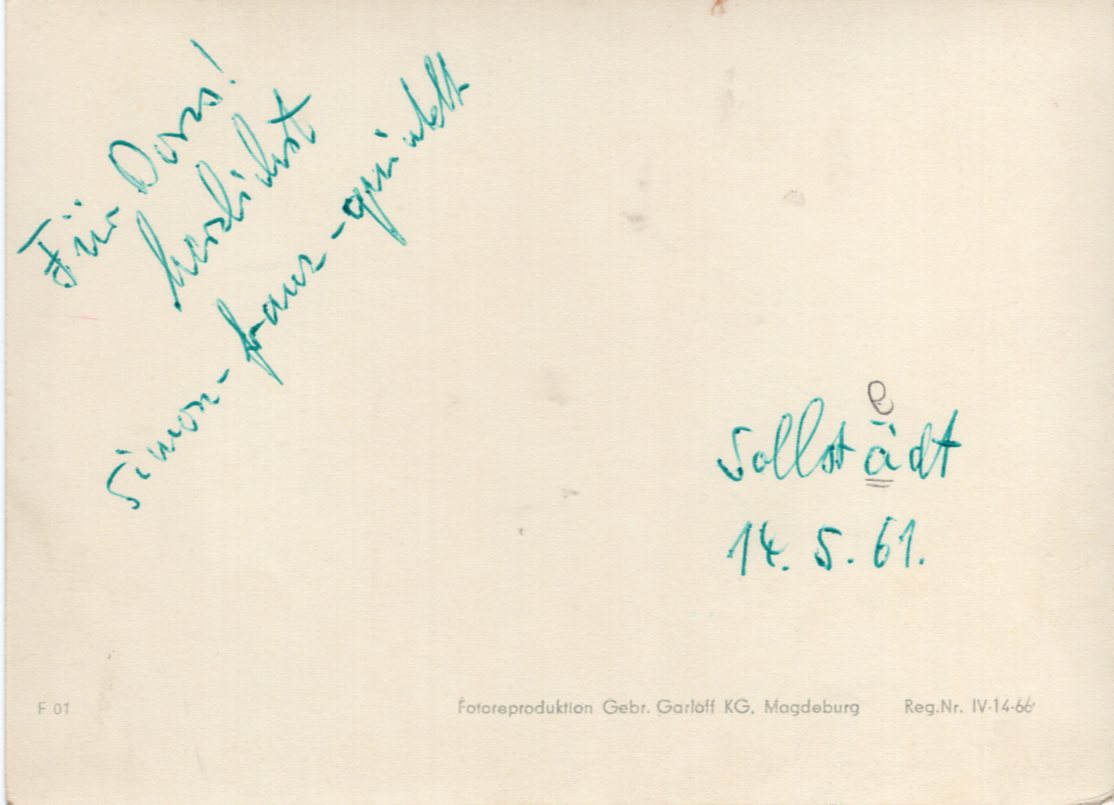 Für Doris!
herzlichst
simon-franz-quintett
e
Sollstädt
14. 5. 61.
F 01
Fotoreproduktion Gebr. Garloff KG, Magdeburg
Reg.Nr. IV-14-66